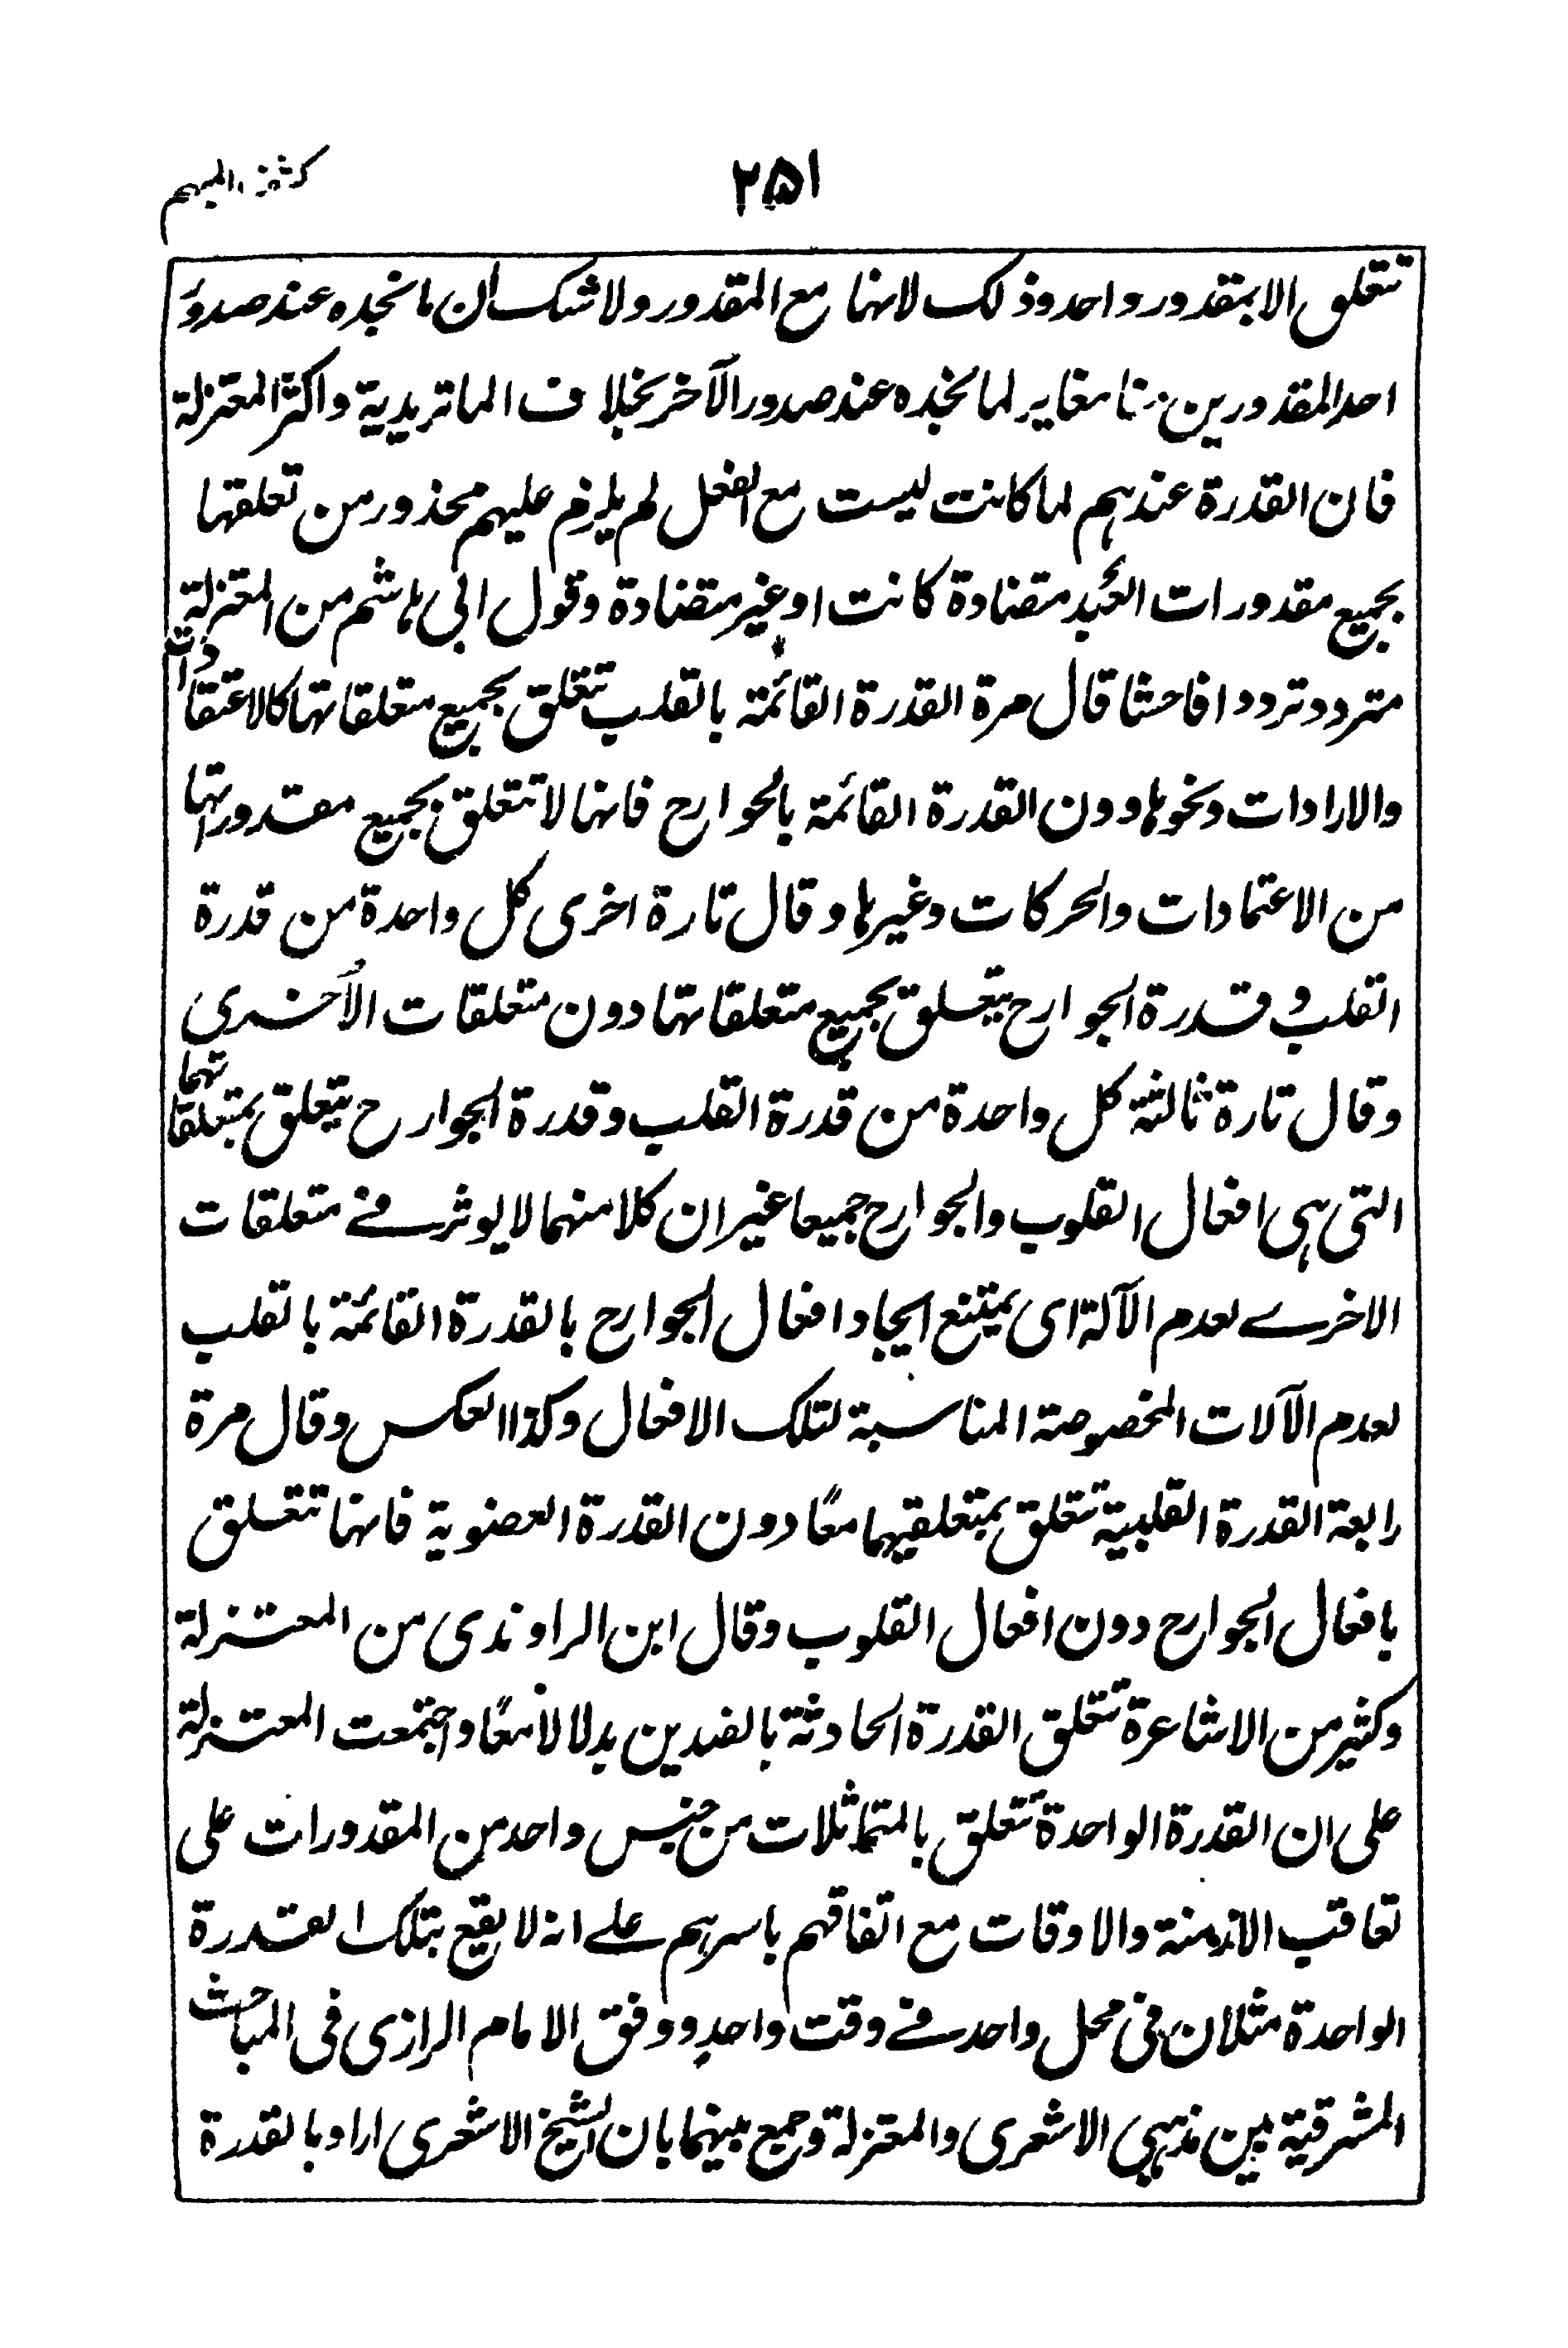 كشف المبهم
٢٥١
تتعلق الا بمقدور واحد وذلك لانها مع المقدور ولا شك ان ما نجده عند صدور
احد المقدورين منا مغاير لما نجده عند صدور الآخر بخلاف الماتريدية واكثر المعتزلة
فان القدرة عندهم لما كانت ليست مع الفعل لم يلزم عليهم محذور من تعلقها
بجميع مقدورات العبد متضادة كانت او غير متضادة وقول ابى هاشم من المعتزلة
متردد ترددا فاحشا قال مرة القدرة القائمة بالقلب تتعلق بجميع متعلقاتها كالاعتقادات
والارادات ونحوها دون القدرة القائمة بالجوارح فانها لا تتعلق بجميع مقدوراتها
من الاعتمادات والحركات وغيرها وقال تارة اخرى كل واحدة من قدرة
القلب و قدرة الجوارح يتعلق بجميع متعلقاتها دون متعلقات الأُخرى
وقال تارة ثالثة كل واحدة من قدرة القلب وقدرة الجوارح يتعلق بمتعلقاتهما
التى هى افعال القلوب والجوارح جميعا غير ان كلا منهما لا يوثر فے متعلقات
الاخرے لعدم الآلة اى يمتنع ايجاد افعال الجوارح بالقدرة القائمة بالقلب
لعدم الآلات المخصوصة المناسبة لتلك الافعال وكذا العكس وقال مرة
رابعة القدرة القلبية تتعلق بمتعلقيهما معًا دون القدرة العضوية فانها تتعلق
بافعال الجوارح دون افعال القلوب وقال ابن الراوندى من المعتزلة
وكثير من الاشاعرة تتعلق القدرة الحادثة بالضدين بدلا لا معًا واجتمعت المعتزلة
على ان القدرة الواحدة تتعلق بالمتماثلات من جنس واحد من المقدورات على
تعاقب الازمنة والاوقات مع اتفاقهم باسرهم علے انه لا يقع بتلك القدرة
الواحدة مثلان فى محل واحد فے وقت واحدٍ ووفق الامام الرازى فى المباحث
المشرقية بين مذهبى الاشعرى والمعتزلة وجمع بينهما بان الشيخ الاشعرى اراد بالقدرة